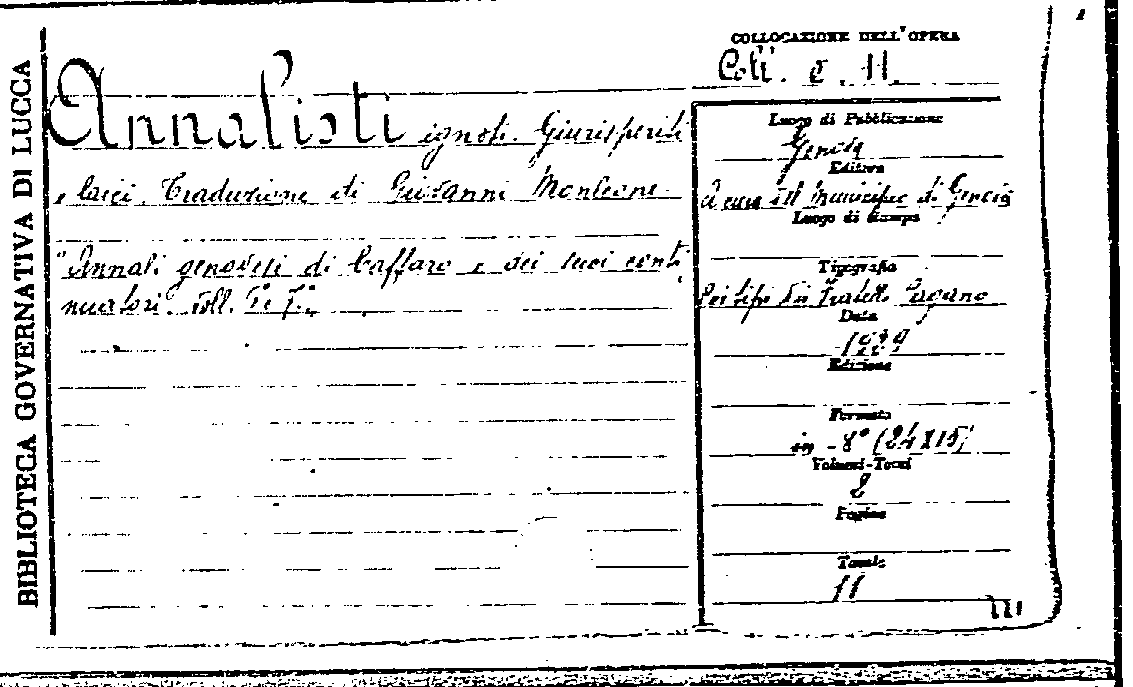 BIBLIOTECA GOVERNATIVA DI LUCCA
COLLOCAZIONE DELL'OPERA
Coll. C. 11.
Annalisti ignoti. Giurisperiti
e laici. Traduzione di Giovanni Monleone
"Annali genovesi di Caffaro e dei suoi conti
nuatori. Voll.
Luogo di Pubblicazione
Genova
Editore
A cura del Municipio di Genova
Luogo di Stampa
Tipografia
Coi tipi dei Fratelli Pagano
Data
Edizione
Formato
in-8° (24X15)
Volumi-Tomi
2
Pagine
Tavole
11